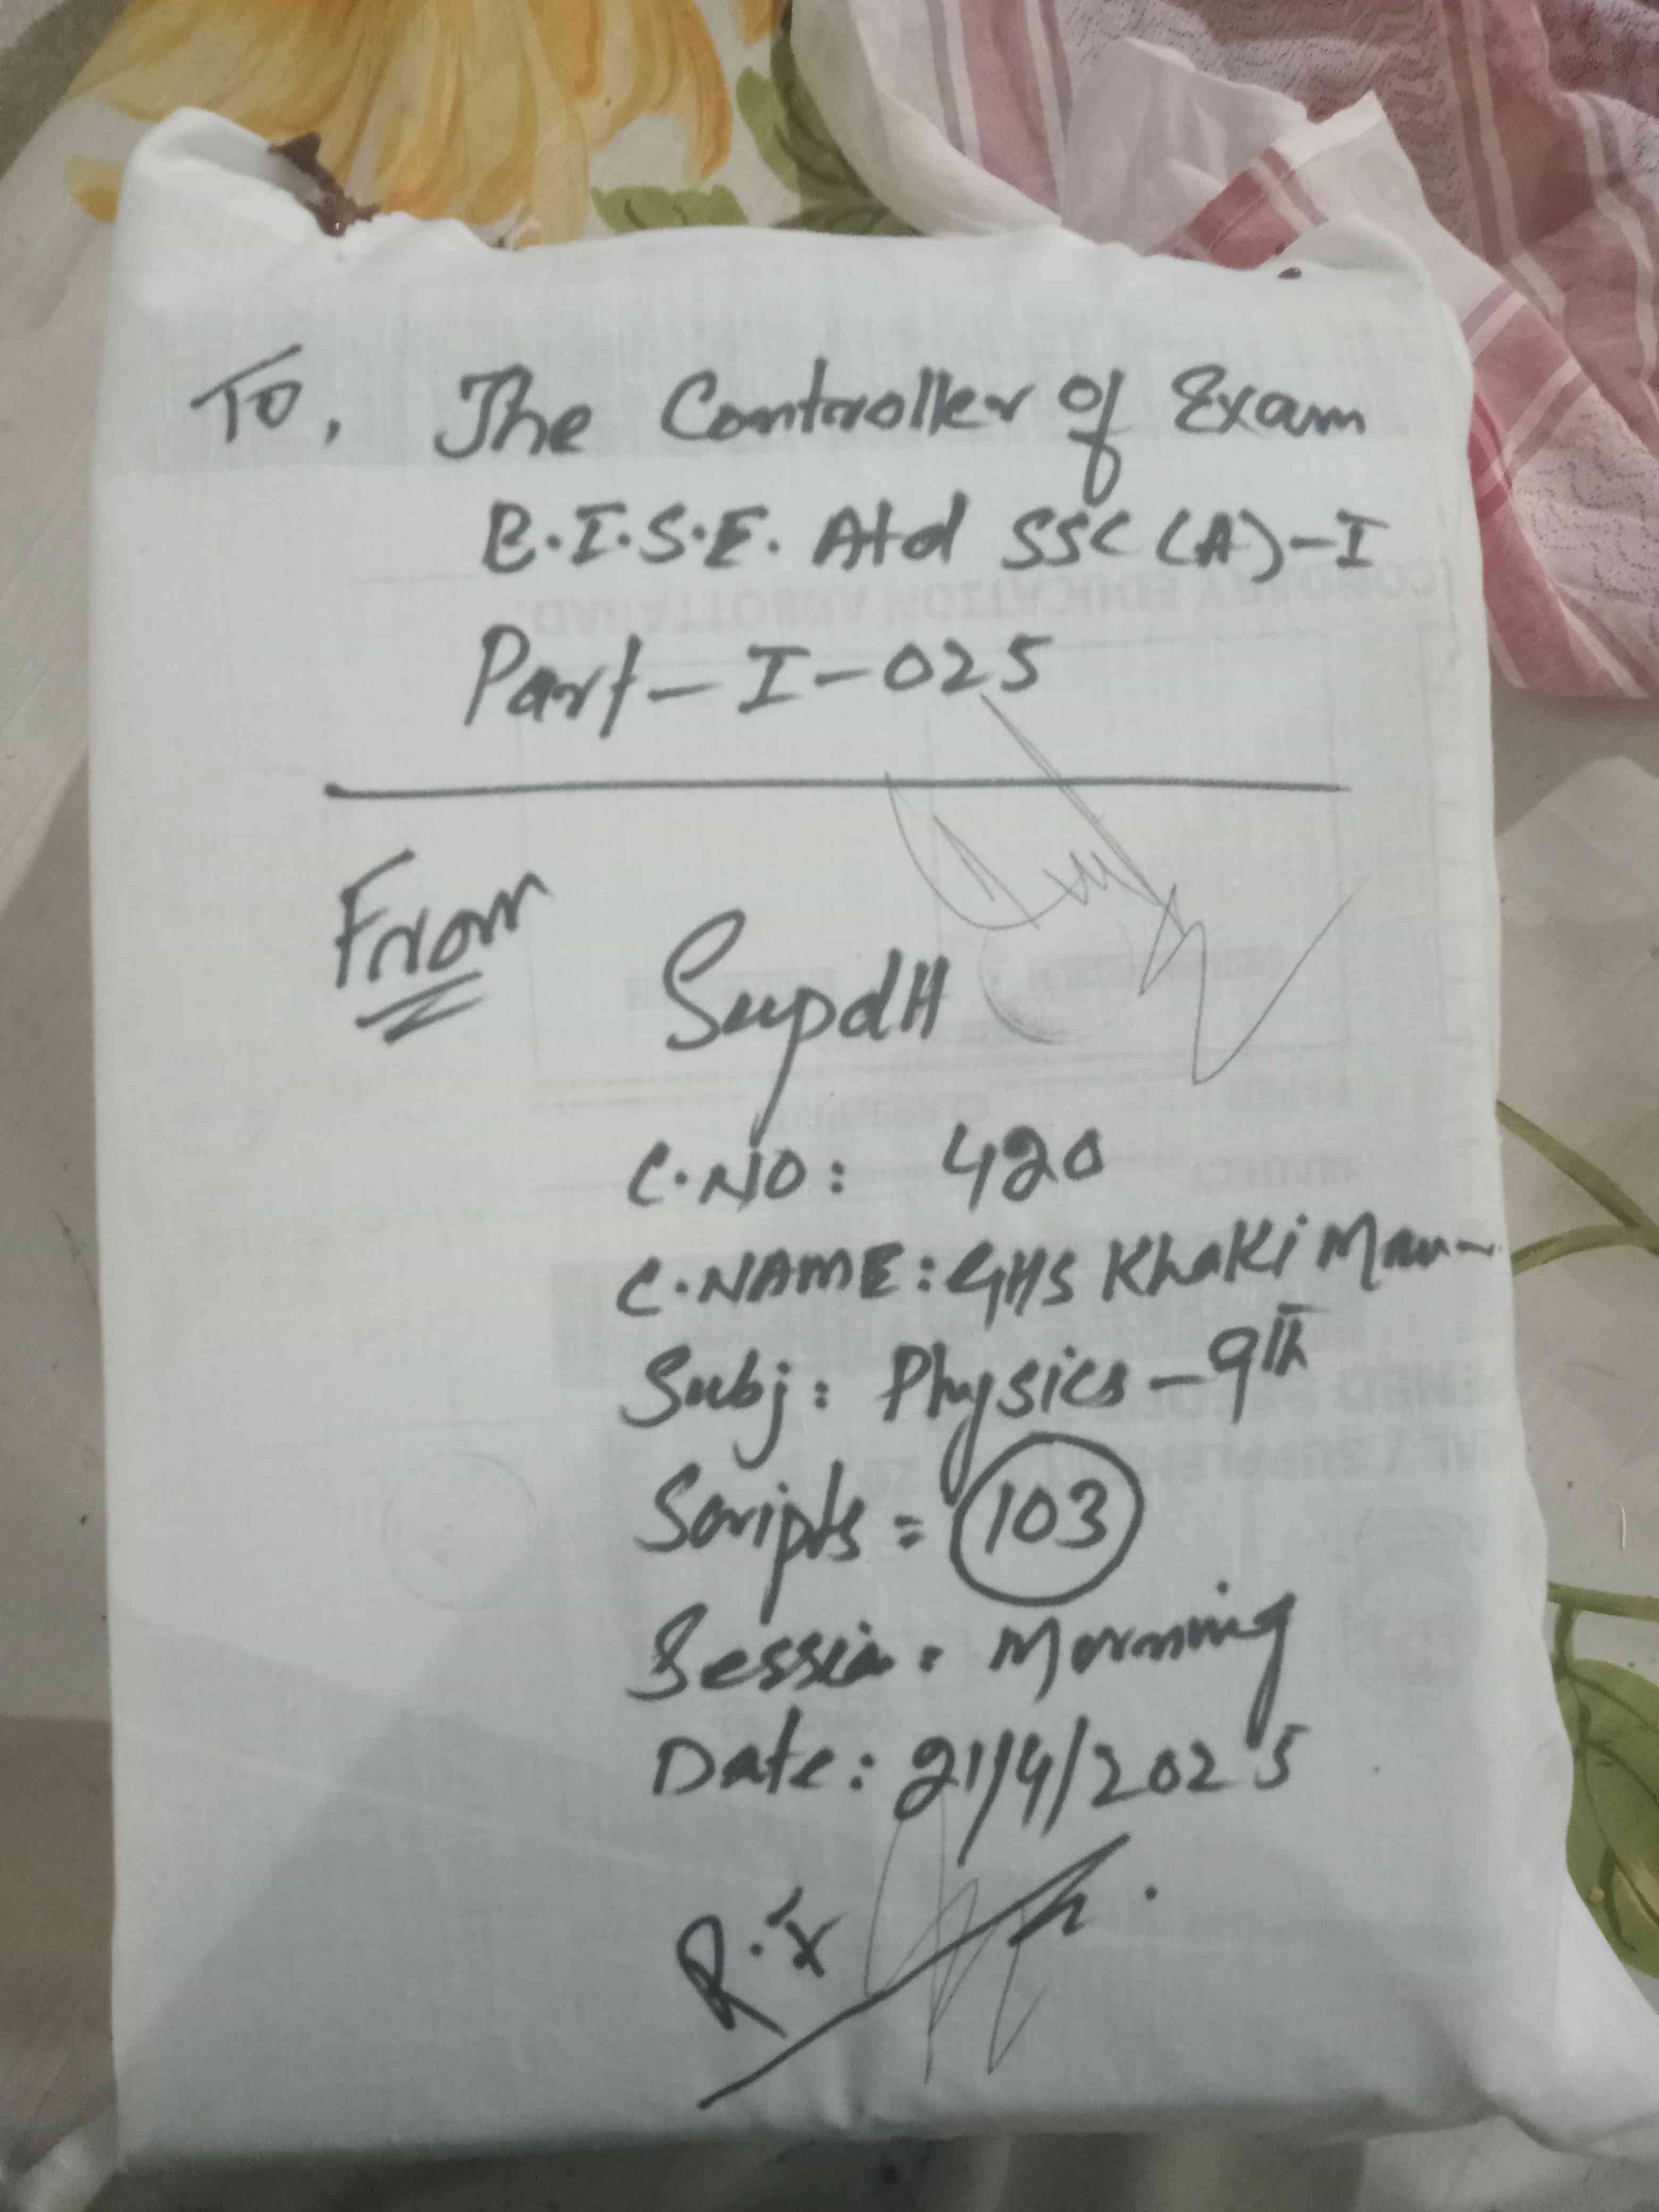 To, The Controller of Exam
B.I.S.E. Atd SSC (A)-I
Part-I-025
From
Supdtt
C.NO: 420
C.NAME: GHS Khaki
Subj: Physics-9th
Scripts = 103
Session: Morning
Date: 21/4/2025